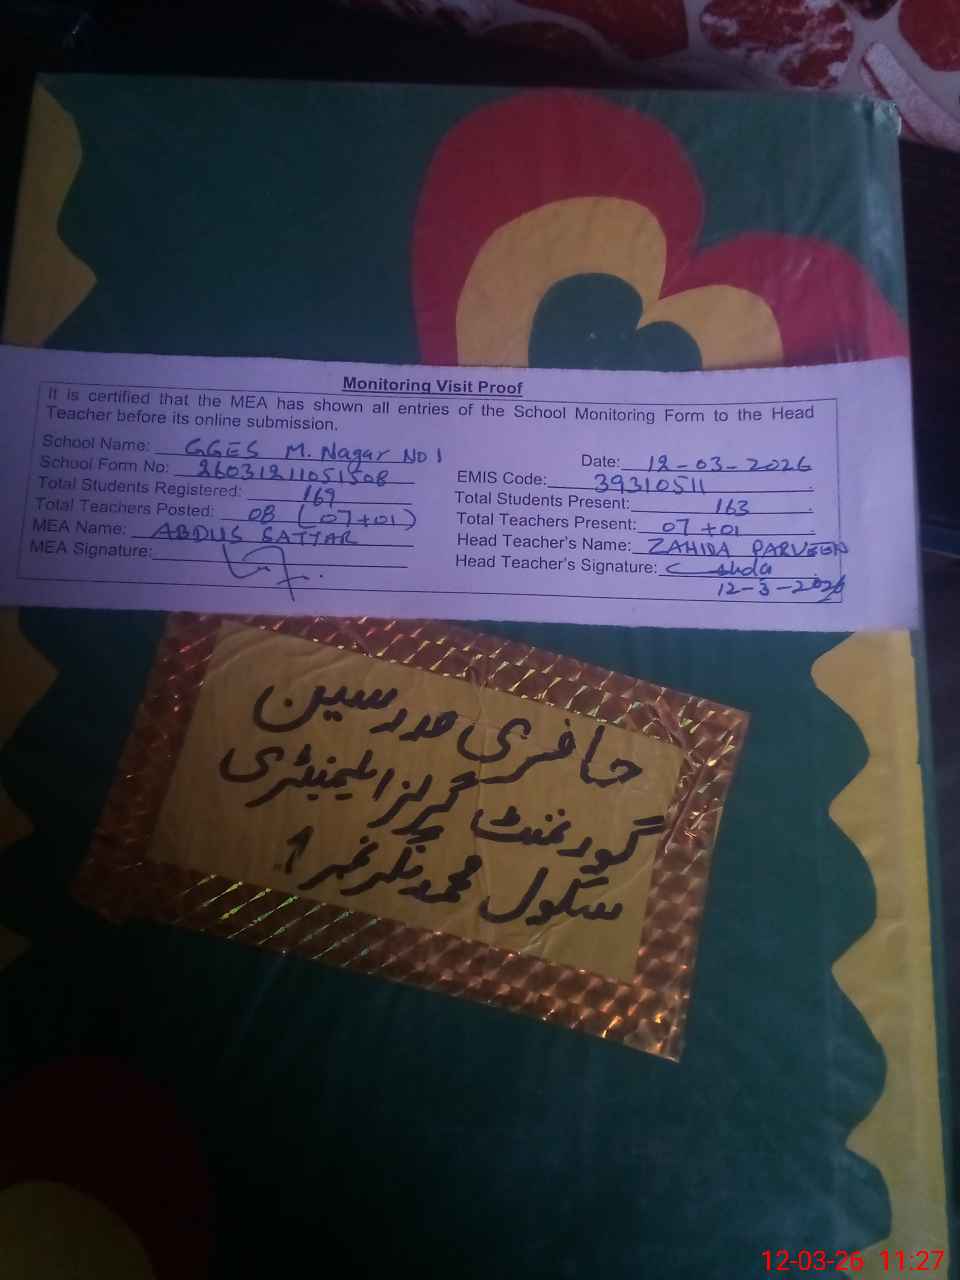 Monitoring Visit Proof
It is certified that the MEA has shown all entries of the School Monitoring Form to the Head
Teacher before its online submission.
School Name: GGES M. Nagar NO 1
Date: 12-03-2026
School Form No: 26031211051508
EMIS Code: 39310511
Total Students Registered: 169
Total Students Present: 163
Total Teachers Posted: 08 (07+01)
Total Teachers Present: 07 +01
MEA Name: ABDUS SATTAR
Head Teacher's Name: ZAHIDA PARVEEN
MEA Signature:
Head Teacher's Signature:
12-3-2026
حاضری مدرسین
گورنمنٹ گرلز ایلیمنیٹری
سکول محمد نگر نمبر 1
12-03-26 11:27